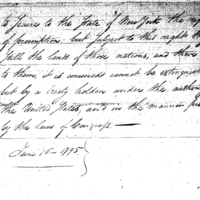 to secure to the State of New York the
of preemption, but subject to this right of
sell the lands of those nations, and there
to them, it is conceived cannot be extinguish
but by a treaty holden under the author
the United States, and in the manner pre
by the laws of Congress —
June 16 — 1795